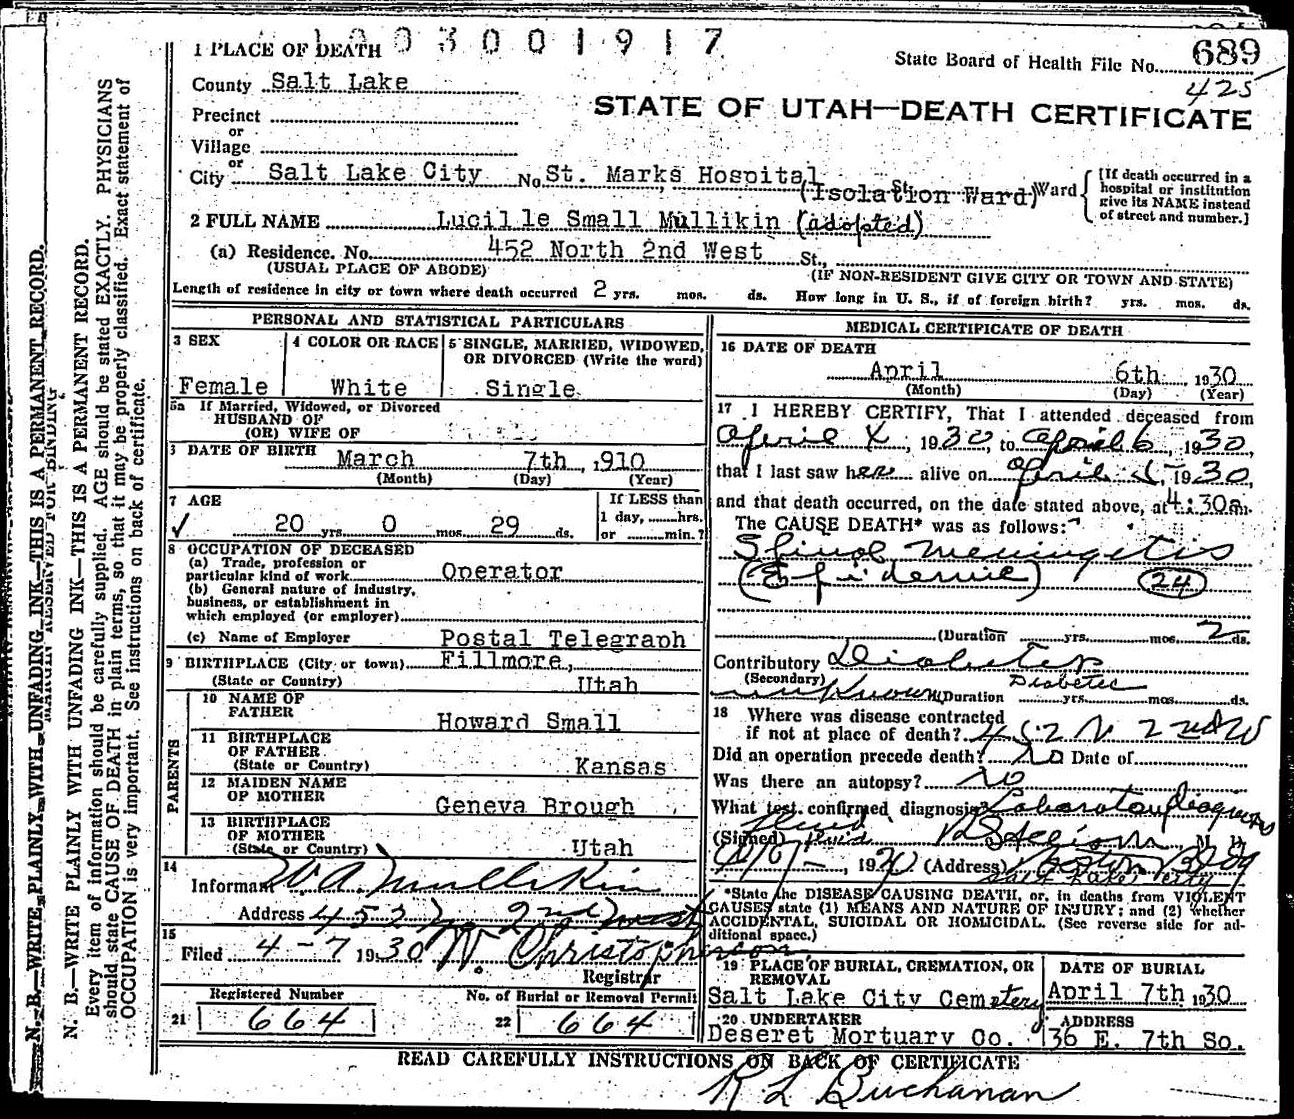 1 PLACE OF DEATH 1003001917
State Board of Health File No. 689
425
County Salt Lake
STATE OF UTAH—DEATH CERTIFICATE
Precinct
or
Village
or
City Salt Lake City No. St. Marks Hospital St. Ward
(Isolation Ward)
[If death occurred in a hospital or institution give its NAME instead of street and number.]
2 FULL NAME Lucille Small Mullikin (adopted)
(a) Residence. No. 452 North 2nd West St.,
(USUAL PLACE OF ABODE) (IF NON-RESIDENT GIVE CITY OR TOWN AND STATE)
Length of residence in city or town where death occurred 2 yrs. mos. ds. How long in U. S., if of foreign birth? yrs. mos. ds.
PERSONAL AND STATISTICAL PARTICULARS
3 SEX
Female
4 COLOR OR RACE
White
5 SINGLE, MARRIED, WIDOWED,
OR DIVORCED (Write the word)
Single
5a If Married, Widowed, or Divorced
HUSBAND OF
(OR) WIFE OF
DATE OF BIRTH March 7th, 1910
(Month) (Day) (Year)
7 AGE
✓ 20 yrs. 0 mos. 29 ds.
If LESS than
1 day, hrs.
or min.?
8 OCCUPATION OF DECEASED
(a) Trade, profession or
particular kind of work Operator
(b) General nature of industry,
business, or establishment in
which employed (or employer)
(c) Name of Employer Postal Telegraph
9 BIRTHPLACE (City or town) Fillmore,
(State or Country) Utah
PARENTS
10 NAME OF
FATHER Howard Small
11 BIRTHPLACE
OF FATHER
(State or Country) Kansas
12 MAIDEN NAME
OF MOTHER Geneva Brough
13 BIRTHPLACE
OF MOTHER
(State or Country) Utah
14
Informant W A Mullikin
Address 452 No. 2nd West
15
Filed 4-7 1930 W. Christopherson
Registrar
Registered Number
21 664
No. of Burial or Removal Permit
22 664
MEDICAL CERTIFICATE OF DEATH
16 DATE OF DEATH
April 6th, 1930
(Month) (Day) (Year)
17 I HEREBY CERTIFY, That I attended deceased from
April 1930, to April 6, 1930,
that I last saw her alive on April 1930,
and that death occurred, on the date stated above, at 4:30a m.
The CAUSE DEATH* was as follows:
Spinal Meningetis
(Epidemic) 24
(Duration yrs. mos. 2 ds.
Contributory Diabetes
(Secondary) Diabetes
unknown Duration yrs. mos. ds.
18 Where was disease contracted
if not at place of death? 452 N 2nd W
Did an operation precede death? no Date of
Was there an autopsy? no
What test confirmed diagnosis? Laboratory diagnosis
(Signed) M. D.
1930 (Address) Boston Bldg
Salt Lake City
*State the DISEASE CAUSING DEATH, or, in deaths from VIOLENT
CAUSES state (1) MEANS AND NATURE OF INJURY; and (2) whether
ACCIDENTAL, SUICIDAL OR HOMICIDAL. (See reverse side for ad-
ditional space.)
19 PLACE OF BURIAL, CREMATION, OR
REMOVAL
Salt Lake City Cemetery
DATE OF BURIAL
April 7th 1930
20 UNDERTAKER
Deseret Mortuary Co.
ADDRESS
36 E. 7th So.
READ CAREFULLY INSTRUCTIONS ON BACK OF CERTIFICATE
R L Buchanan
N. B.—WRITE PLAINLY WITH UNFADING INK—THIS IS A PERMANENT RECORD.
MARGIN RESERVED FOR BINDING
N. B.—WRITE PLAINLY WITH UNFADING INK—THIS IS A PERMANENT RECORD.
Every item of information should be carefully supplied. AGE should be stated EXACTLY. PHYSICIANS
should state CAUSE OF DEATH in plain terms, so that it may be properly classified. Exact statement of
OCCUPATION is very important. See instructions on back of certificate.